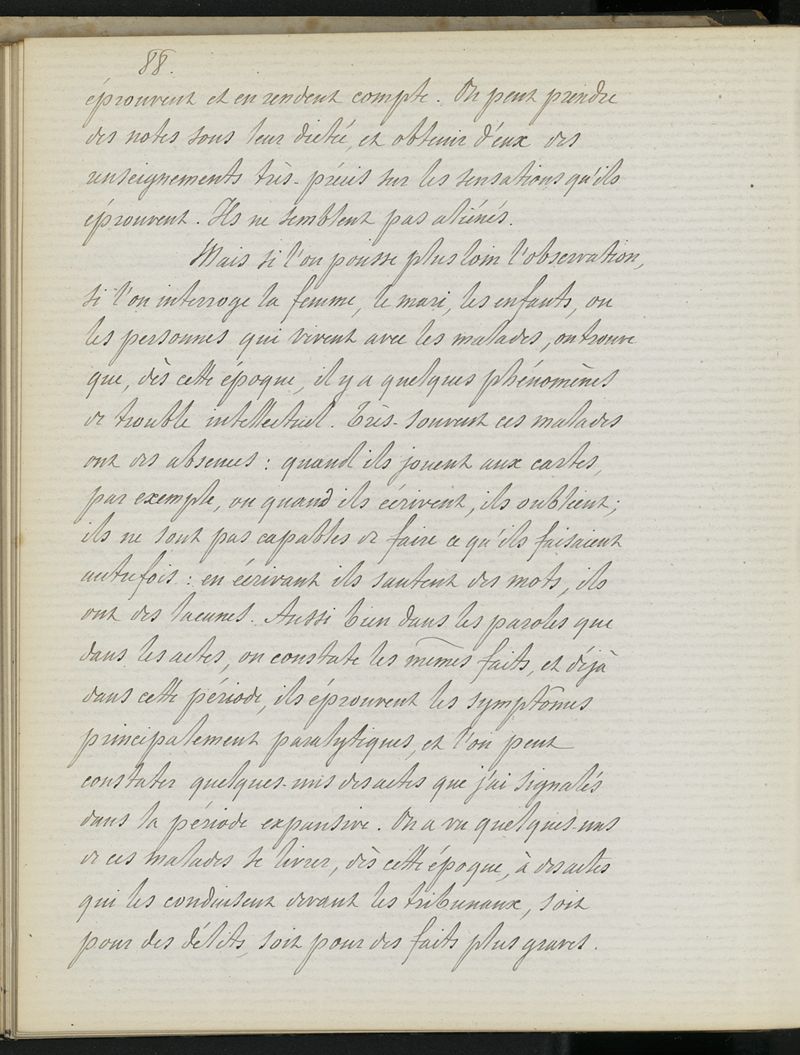 88.
éprouvent et en rendent compte. On peut prendre
des notes sous leur dictée, et obtenir d'eux des
renseignements très-précis sur les sensations qu'ils
éprouvent. Ils ne semblent pas aliénés.
Mais si l'on pousse plus loin l'observation,
si l'on interroge la femme, le mari, les enfants, ou
les personnes qui vivent avec les malades, on trouve
que, dès cette époque, il y a quelques phénomènes
de trouble intellectuel. Très-souvent ces malades
ont des absences : quand ils jouent aux cartes,
par exemple, ou quand ils écrivent, ils oublient ;
ils ne sont pas capables de faire ce qu'ils faisaient
autrefois : en écrivant ils sautent des mots, ils
ont des lacunes. Aussi bien dans les paroles que
dans les actes, on constate les mêmes faits, et déjà
dans cette période, ils éprouvent les symptômes
principalement paralytiques, et l'on peut
constater quelques-uns des actes que j'ai signalés
dans la période expansive. On a vu quelques-uns
de ces malades se livrer, dès cette époque, à des actes
qui les conduisent devant les tribunaux, soit
pour des délits, soit pour des faits plus graves.